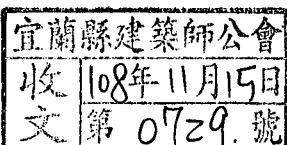 宜蘭縣建築師公會
收文
108年11月15日
第0729.號